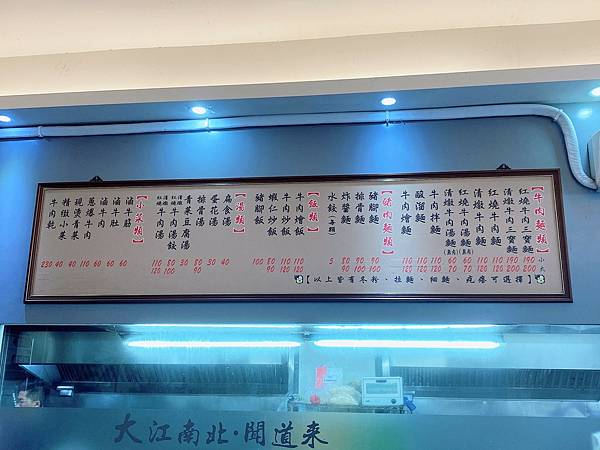 【牛肉麵類】
紅燒牛肉三寶麵 小190 大200
清燉牛肉三寶麵 190 200
紅燒牛肉麵 110 120
清燉牛肉麵 110 120
紅燒牛肉湯麵(無肉) 60 70
清燉牛肉湯麵(無肉) 60 70
牛肉拌麵 110 120
酸溜麵 110 120
牛肉燴麵 110 120
【豬肉麵類】
豬腳麵 90 100
排骨麵 90 100
炸醬麵 80 90
水餃(每顆) 5
【飯類】
牛肉燴飯 110 120
牛肉炒飯 110 120
蝦仁炒飯 80 90
豬腳飯 100
【湯類】
扁食湯 40
蛋花湯 30
排骨湯 80 90
青菜豆腐湯 30
清燉紅燒牛肉湯餃 80 100
清燉紅燒牛肉湯 110 120
【小菜類】
滷牛筋 60
滷牛肚 60
滷牛肉 60
蔥爆牛肉 110
現燙青菜 40
精緻小菜 40
牛肉乾 230
【以上皆有冬粉、拉麵、細麵、疙瘩可選擇】
大江南北·聞道来